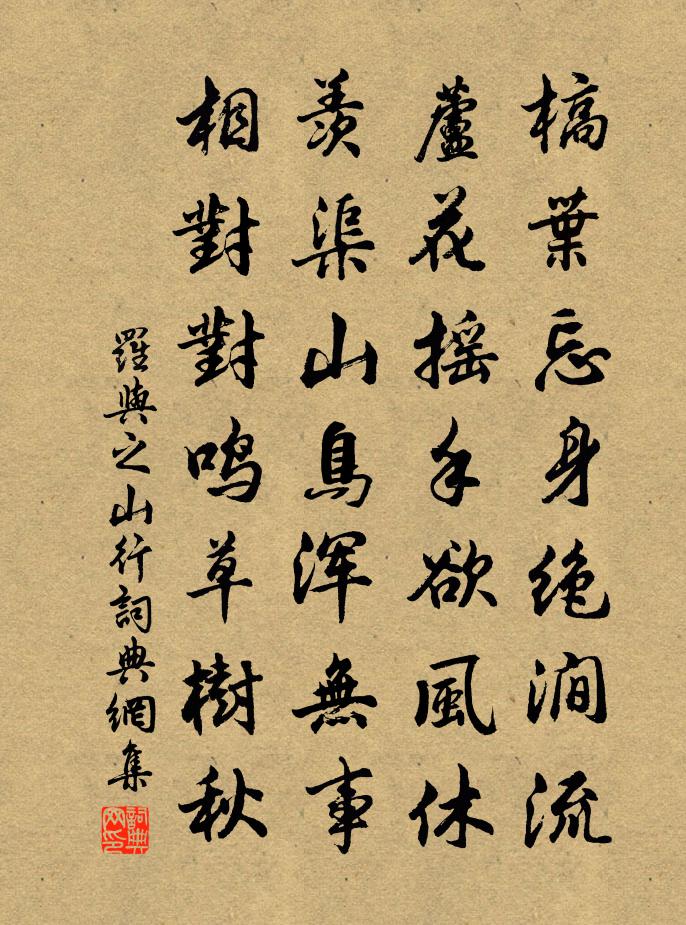 槁葉忘身絶澗流
蘆花摇手欲風休
羨渠山鳥渾無事
相對對鳴草樹秋
羅與之山行詞典網集
詞典网印